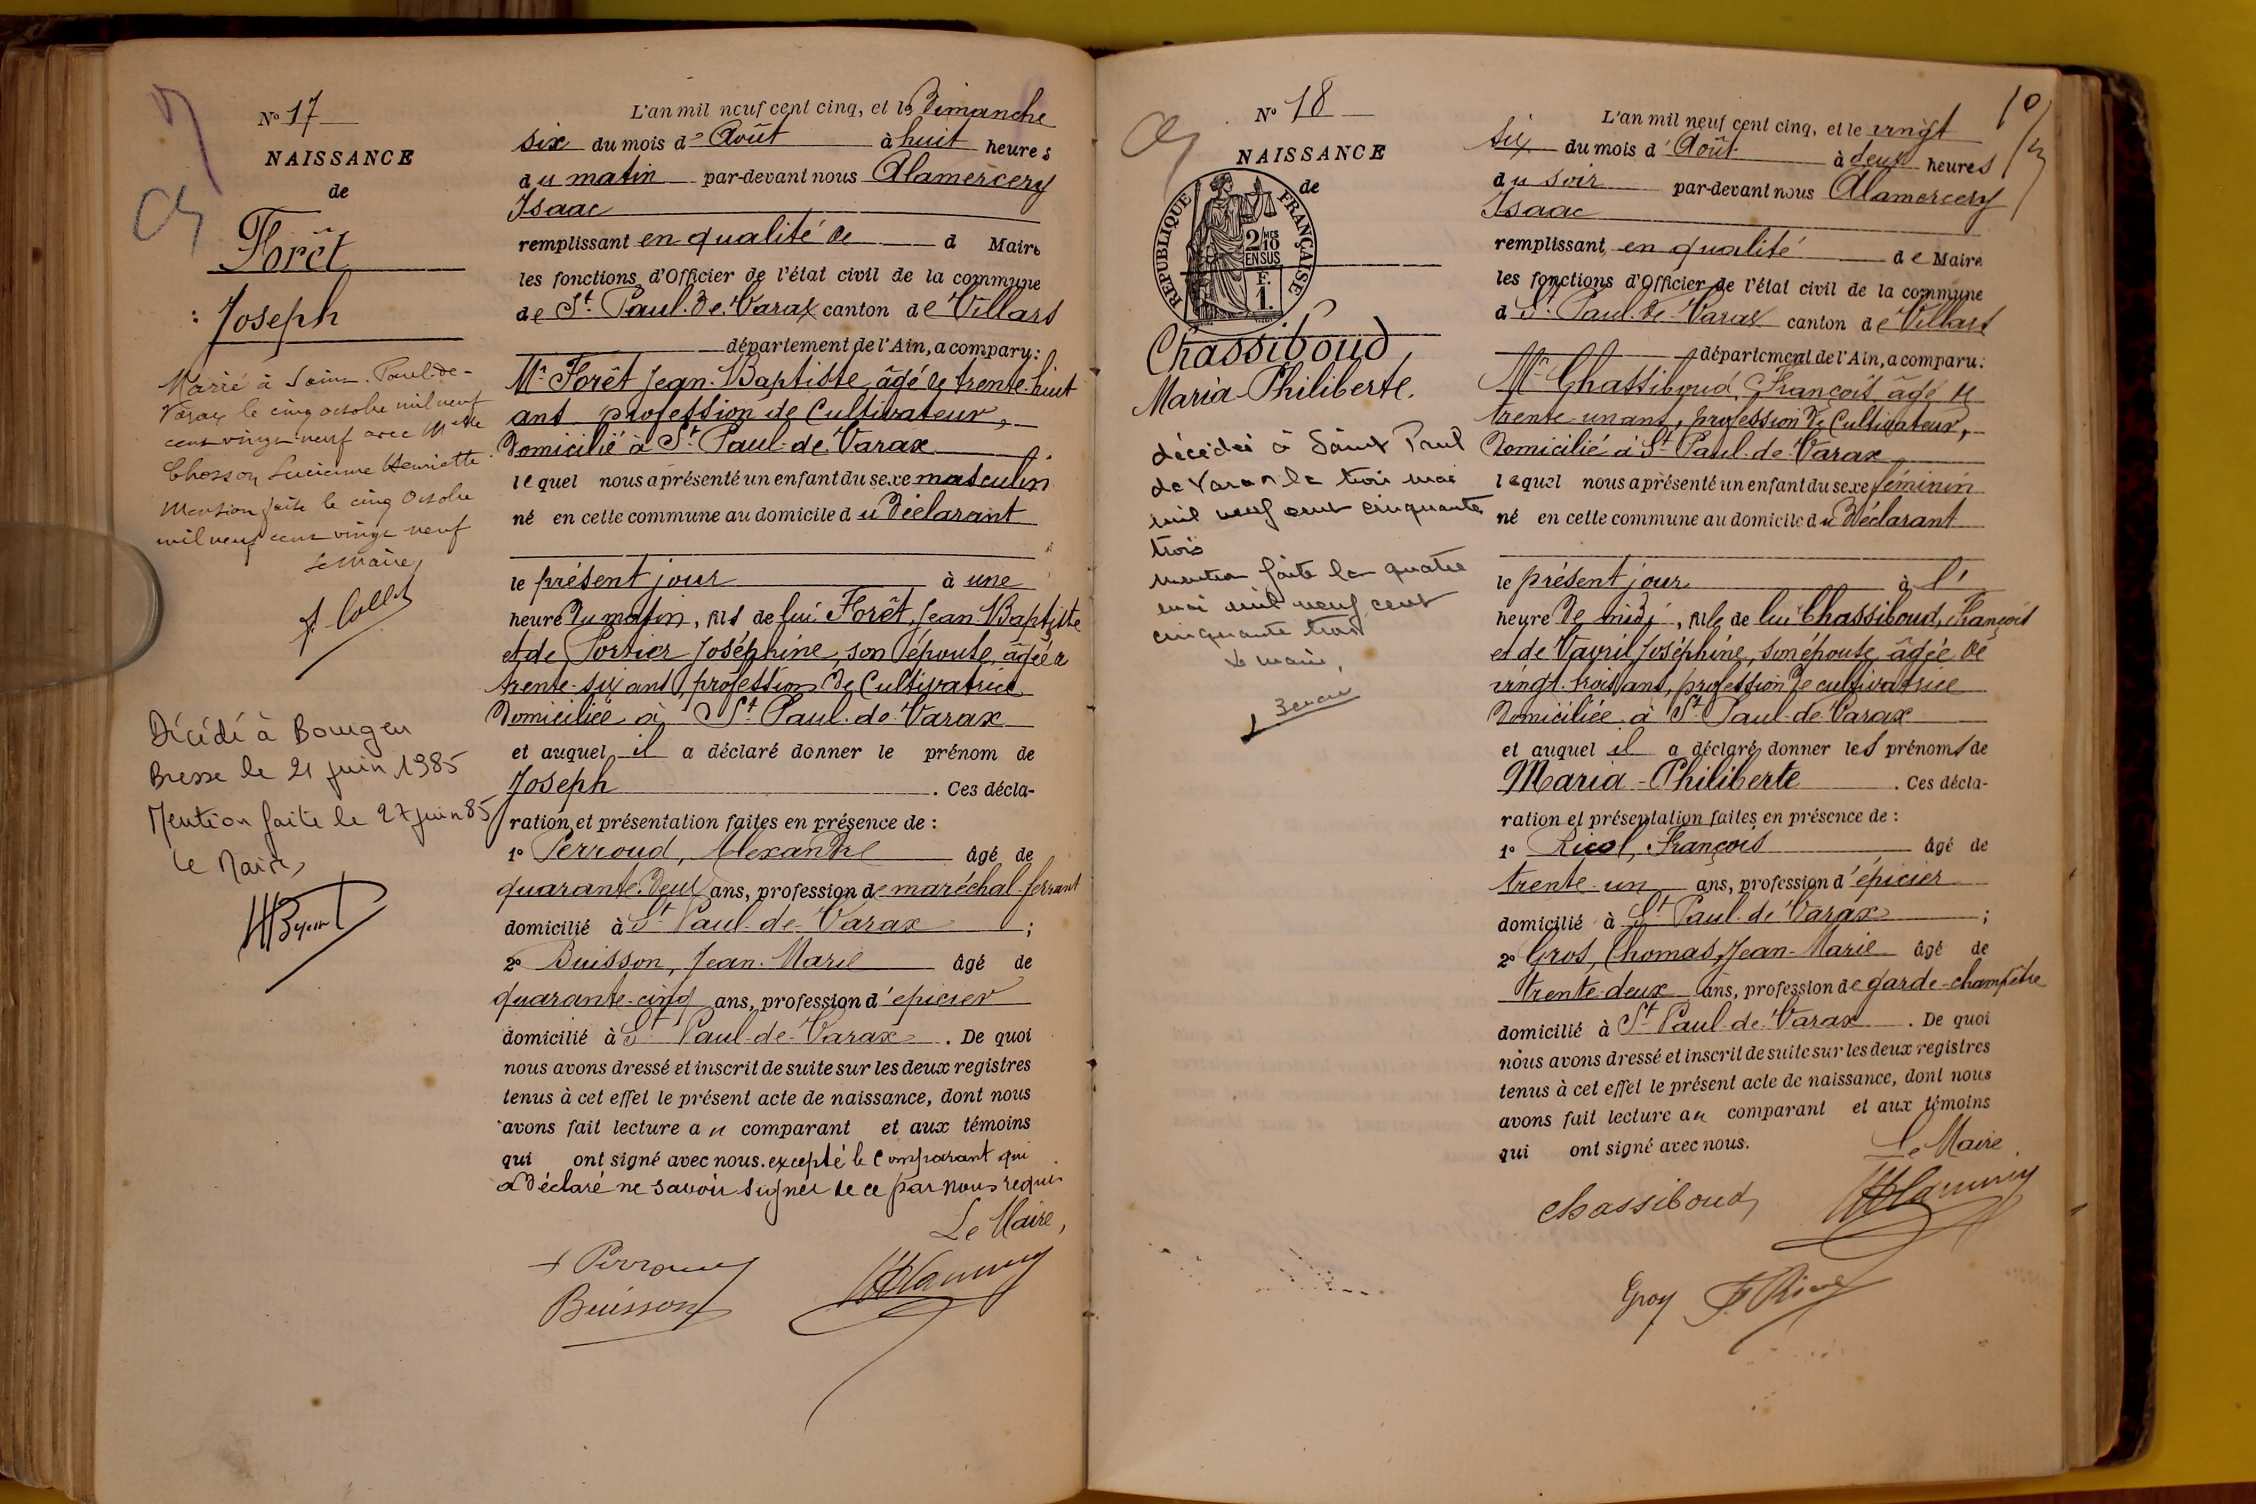 N° 17
NAISSANCE
de
Forêt
Joseph
Marié à Saint-Paul-de-
Varax le cinq octobre mil neuf
cent vingt neuf avec Melle
Chosson Lucienne Henriette
Mention faite le cinq Octobre
mil neuf cent vingt neuf
Le Maire,
Décédé à Bourg en
Bresse le 21 juin 1985
Mention faite le 27 juin 85
Le Maire,
L'an mil neuf cent cinq, et le Dimanche
six du mois d'Août à huit heures
du matin par-devant nous Alamercery
Isaac
remplissant en qualité de d Maire
les fonctions d'Officier de l'état civil de la commune
de St Paul-de-Varax canton de Villars
département de l'Ain, a comparu:
Mr Forêt Jean-Baptiste, âgé de trente-huit
ans profession de Cultivateur,
Domicilié à St Paul-de-Varax
lequel nous a présenté un enfant du sexe masculin
né en cette commune au domicile du Déclarant
le présent jour à une
heure du matin, fils de lui Forêt, Jean-Baptiste
et de Joséphine, son épouse, âgée de
trente-six ans, profession de Cultivatrice
Domiciliée à St Paul-de-Varax
et auquel il a déclaré donner le prénom de
Joseph. Ces décla-
ration et présentation faites en présence de :
1° Perroud, Alexandre âgé de
quarante-deux ans, profession de maréchal-ferrant
domicilié à St Paul-de-Varax ;
2° Buisson, Jean-Marie âgé de
quarante-cinq ans, profession d'épicier
domicilié à St Paul-de-Varax. De quoi
nous avons dressé et inscrit de suite sur les deux registres
tenus à cet effet le présent acte de naissance, dont nous
avons fait lecture au comparant et aux témoins
qui ont signé avec nous. excepté le Comparant qui
a Déclaré ne savoir signer de ce par nous requis
Le Maire,
Perroud
Buisson
N° 18
NAISSANCE
de
REPUBLIQUE FRANÇAISE
2/10 MES
EN SUS
F.
1.
Chassiboud,
Maria-Philiberte.
décédée à Saint Paul
de Varax le trois mai
mil neuf cent cinquante
trois
Mention faite le quatre
mai mil neuf cent
cinquante trois
Le Maire,
L'an mil neuf cent cinq, et le vingt
six du mois d'Août à deux heures
du soir par-devant nous Alamercery
Isaac
remplissant en qualité de Maire
les fonctions d'Officier de l'état civil de la commune
d St Paul-de-Varax canton de Villars
département de l'Ain, a comparu:
Mr Chassiboud, François âgé de
trente-un ans, profession de Cultivateur,
Domicilié à St Paul-de-Varax
lequel nous a présenté un enfant du sexe féminin
né en cette commune au domicile du Déclarant
le présent jour à l'
heure de midi, fille de lui Chassiboud, François
et de Vayril Joséphine, son épouse, âgée de
vingt-trois ans, profession de cultivatrice
Domiciliée à St Paul-de-Varax
et auquel il a déclaré donner les prénoms de
Maria-Philiberte. Ces décla-
ration et présentation faites en présence de :
1° Ricol, François âgé de
trente-un ans, profession d'épicier
domicilié à St Paul-de-Varax ;
2° Gros, Thomas, Jean-Marie âgé de
trente-deux ans, profession de garde-champêtre
domicilié à St Paul-de-Varax. De quoi
nous avons dressé et inscrit de suite sur les deux registres
tenus à cet effet le présent acte de naissance, dont nous
avons fait lecture au comparant et aux témoins
qui ont signé avec nous.
Le Maire
Chassiboud